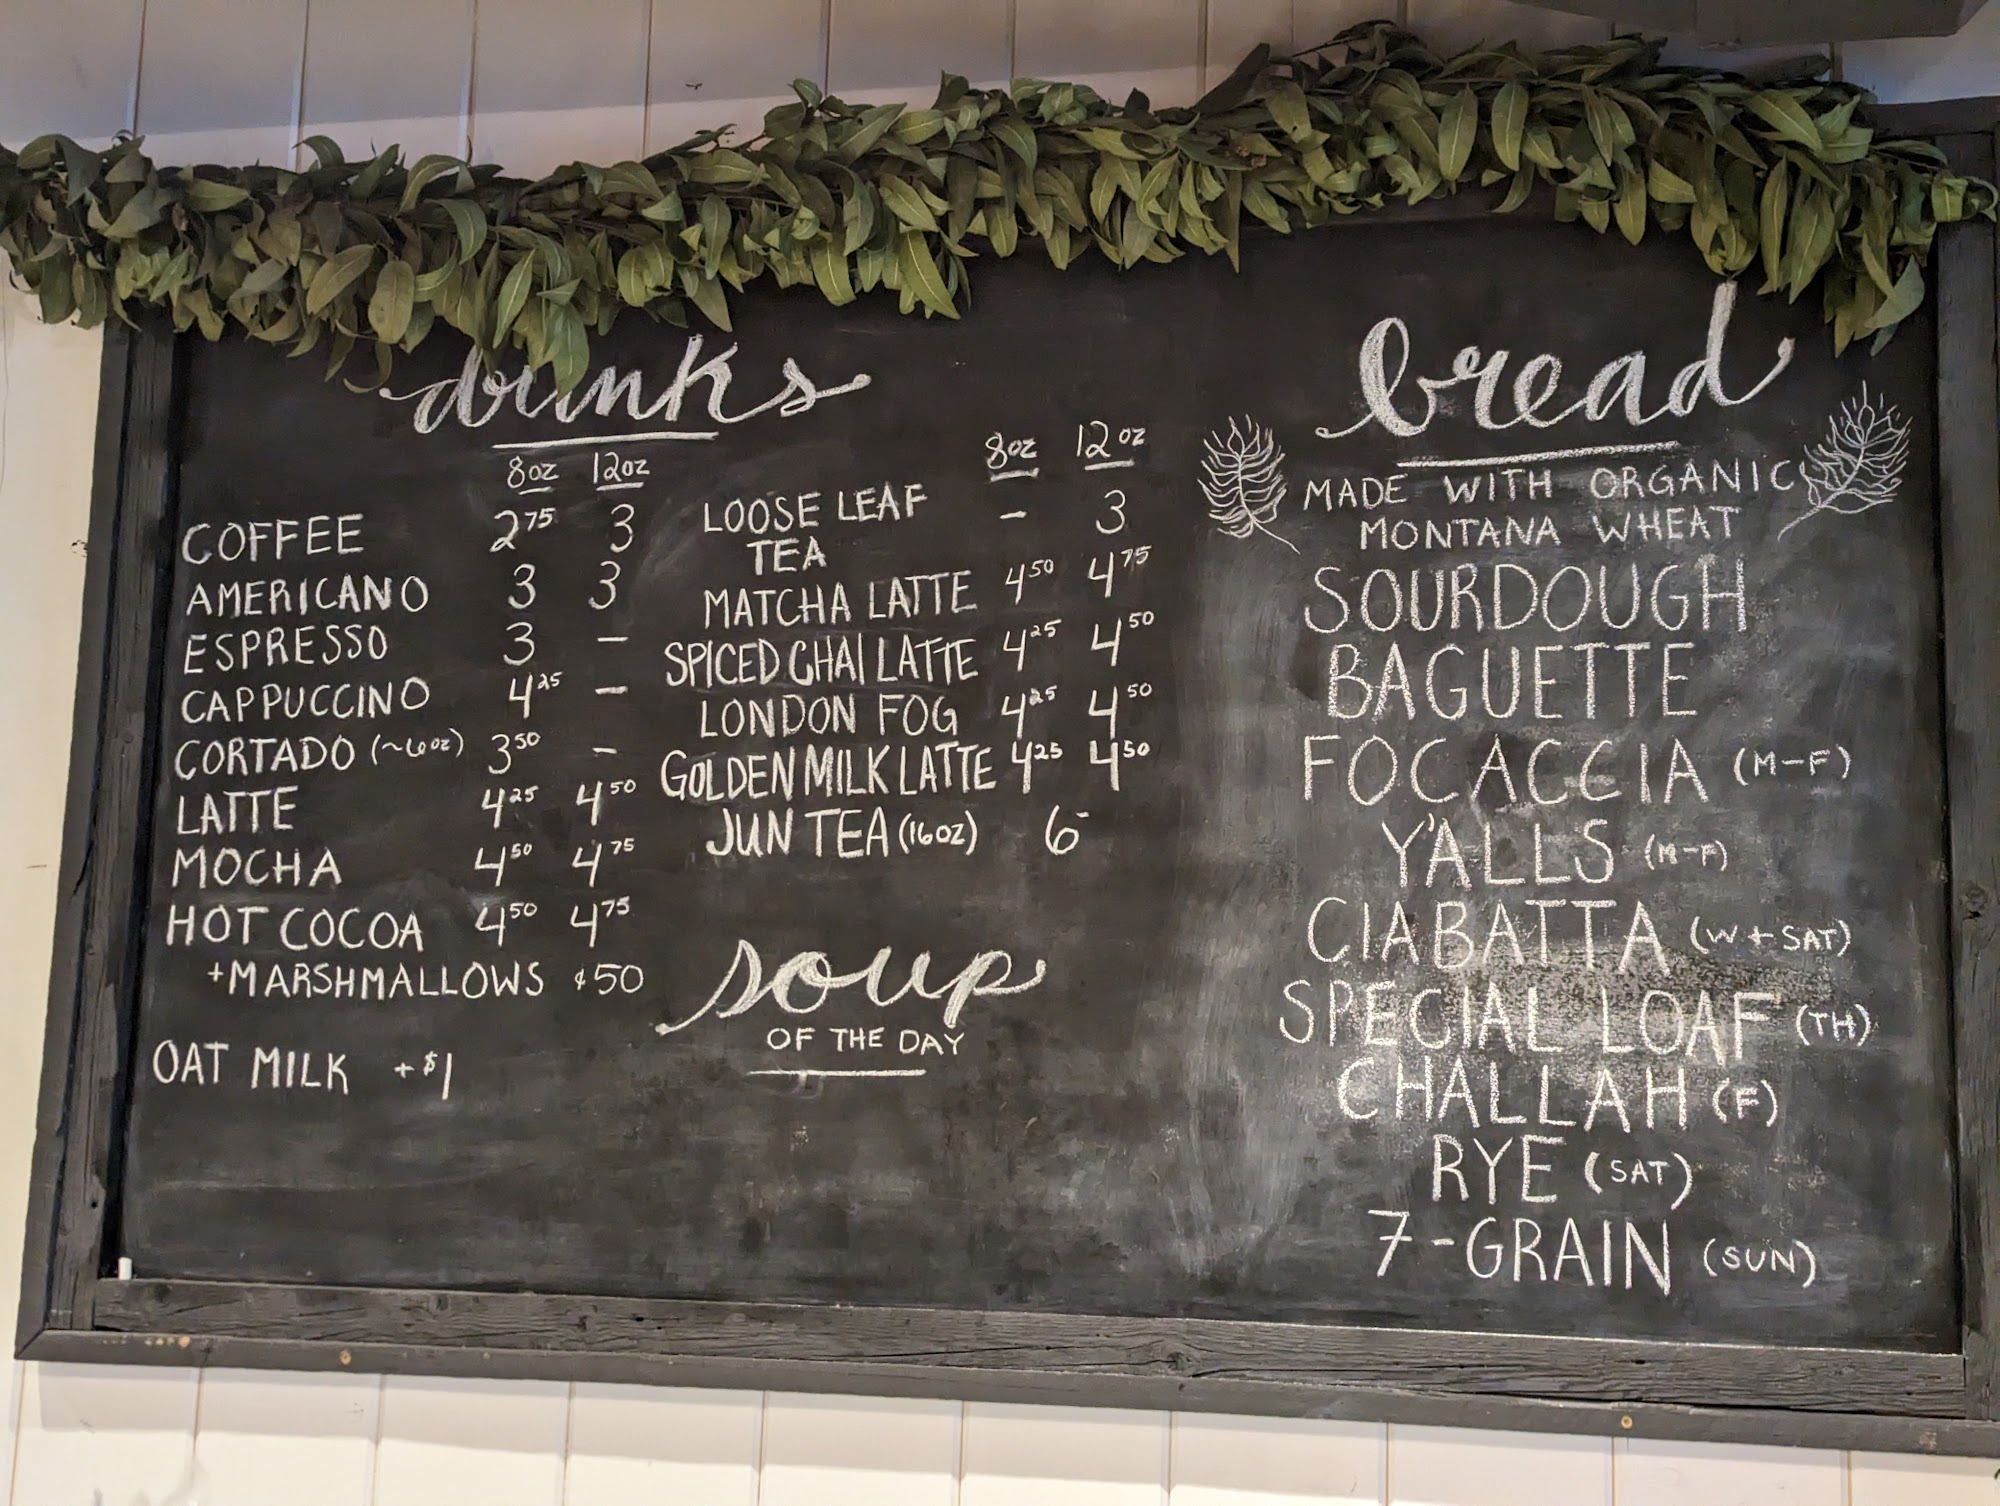 drinks
8oz 12oz
COFFEE 2 75 3
AMERICANO 3 3
ESPRESSO 3 -
CAPPUCCINO 4 25 -
CORTADO (~6oz) 3 50 -
LATTE 4 25 4 50
MOCHA 4 50 4 75
HOT COCOA 4 50 4 75
+MARSHMALLOWS ¢50
OAT MILK +$1
8oz 12oz
LOOSE LEAF - 3
TEA
MATCHA LATTE 4 50 4 75
SPICED CHAI LATTE 4 25 4 50
LONDON FOG 4 25 4 50
GOLDEN MILK LATTE 4 25 4 50
JUN TEA (16oz) 6-
soup
OF THE DAY
bread
MADE WITH ORGANIC
MONTANA WHEAT
SOURDOUGH
BAGUETTE
FOCACCIA (M-F)
Y'ALLS (M-F)
CIABATTA (W+SAT)
SPECIAL LOAF (TH)
CHALLAH (F)
RYE (SAT)
7-GRAIN (SUN)